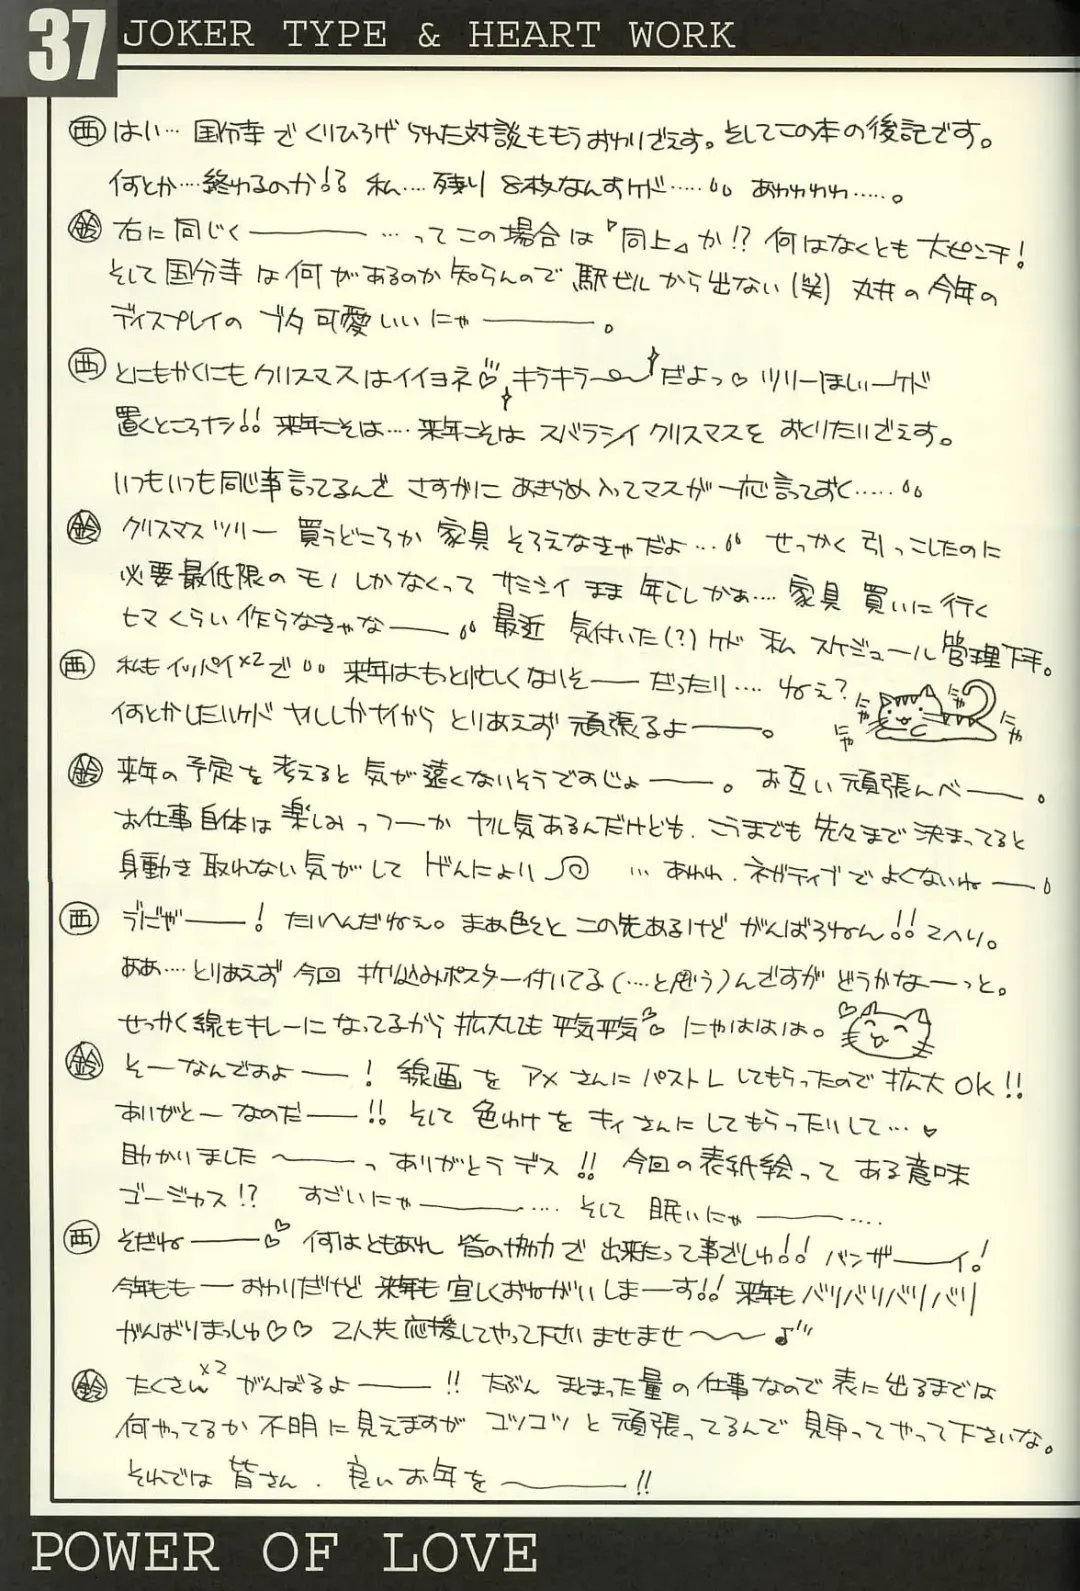 37
JOKER TYPE & HEART WORK
西 はい… 国分寺でくりひろげられた対談ももうおわりざえす。そしてこの本の後記です。
何とか…終わるのか!? 私… 残り8枚なんすケド…… あわわわわ……。
鈴 右に同じく――― …ってこの場合は『同上』か!? 何はなくとも大ピンチ!
そして国分寺は何があるのか知らんので駅ビルから出ない(笑) 丸井の今年の
ディスプレイのブタ可愛いいにゃ―――。
西 とにもかくにもクリスマスはイイヨネ♡ キラキラ〜だよっ♡ ツリーほしいーケド
置くところナシ!! 来年こそは… 来年こそはスバラシイクリスマスをおくりたいざえす。
いつもいつも同じ事言ってるんで さすがに あきらめ入ってマスが一応言っておく……
鈴 クリスマスツリー 買うどころか 家具 そろえなきゃだよ… せっかく引っこしたのに
必要最低限のモノしかなくって サミシイまま年こしかぁ… 家具買いに行く
ヒマくらい作らなきゃな―― 最近 気付いた(?)ケド 私 スケジュール管理下手。
西 私もイッパイ×2で 来年はもっと忙しくないそ――だったり… ねぇ?
何とかしたいケド ヤルしかナイから とりあえず 頑張るよ――。
にゃ にゃ にゃ にゃ
鈴 来年の予定を考えると気が遠くないそうですじょ――。 お互い頑張んべ――。
お仕事自体は楽しみっつーか ヤル気あるんだけども、こうまでも先々まで決まってると
身動き取れない気がして げんにょり …あわわ、ネガティブでよくないね――。
西 うだゃ――! たいへんだねぇ。まぁ色々とこの先あるけど がんばろねん!! 2へり。
ああ… とりあえず今回 折り込みポスター付いてる(…と思う)んですが どうかなーっと。
せっかく線もキレーになってるから 拡大しても平気平気♡ にゃははは。
鈴 そーなんですよ――! 線画をアメさんにパストしてもらったので拡大OK!!
ありがとーなのだ――!! そして色わけをキィさんにしてもらったいして…♡
助かりました〜――っ ありがとうデス!! 今回の表紙絵って ある意味
ゴージャス!? すごいにゃ――… そして 眠いにゃ――…
西 そだね――♡ 何はともあれ 皆の協力で出来たって事でしゅ!! バンザ――イ!
今年もも―おわりだけど 来年も宜しくおねがいしまーす!! 来年もバリバリバリバリ
がんばりまっしゅ♡♡ 2人共応援してやって下さいませませ〜〜♪
鈴 たくさん×2 がんばるよ――!! たぶん まとまった量の仕事なので表に出るまでは
何やってるか不明に見えますが コツコツと頑張ってるんで見守ってやって下さいな。
それでは皆さん、良いお年を〜――!!
POWER OF LOVE